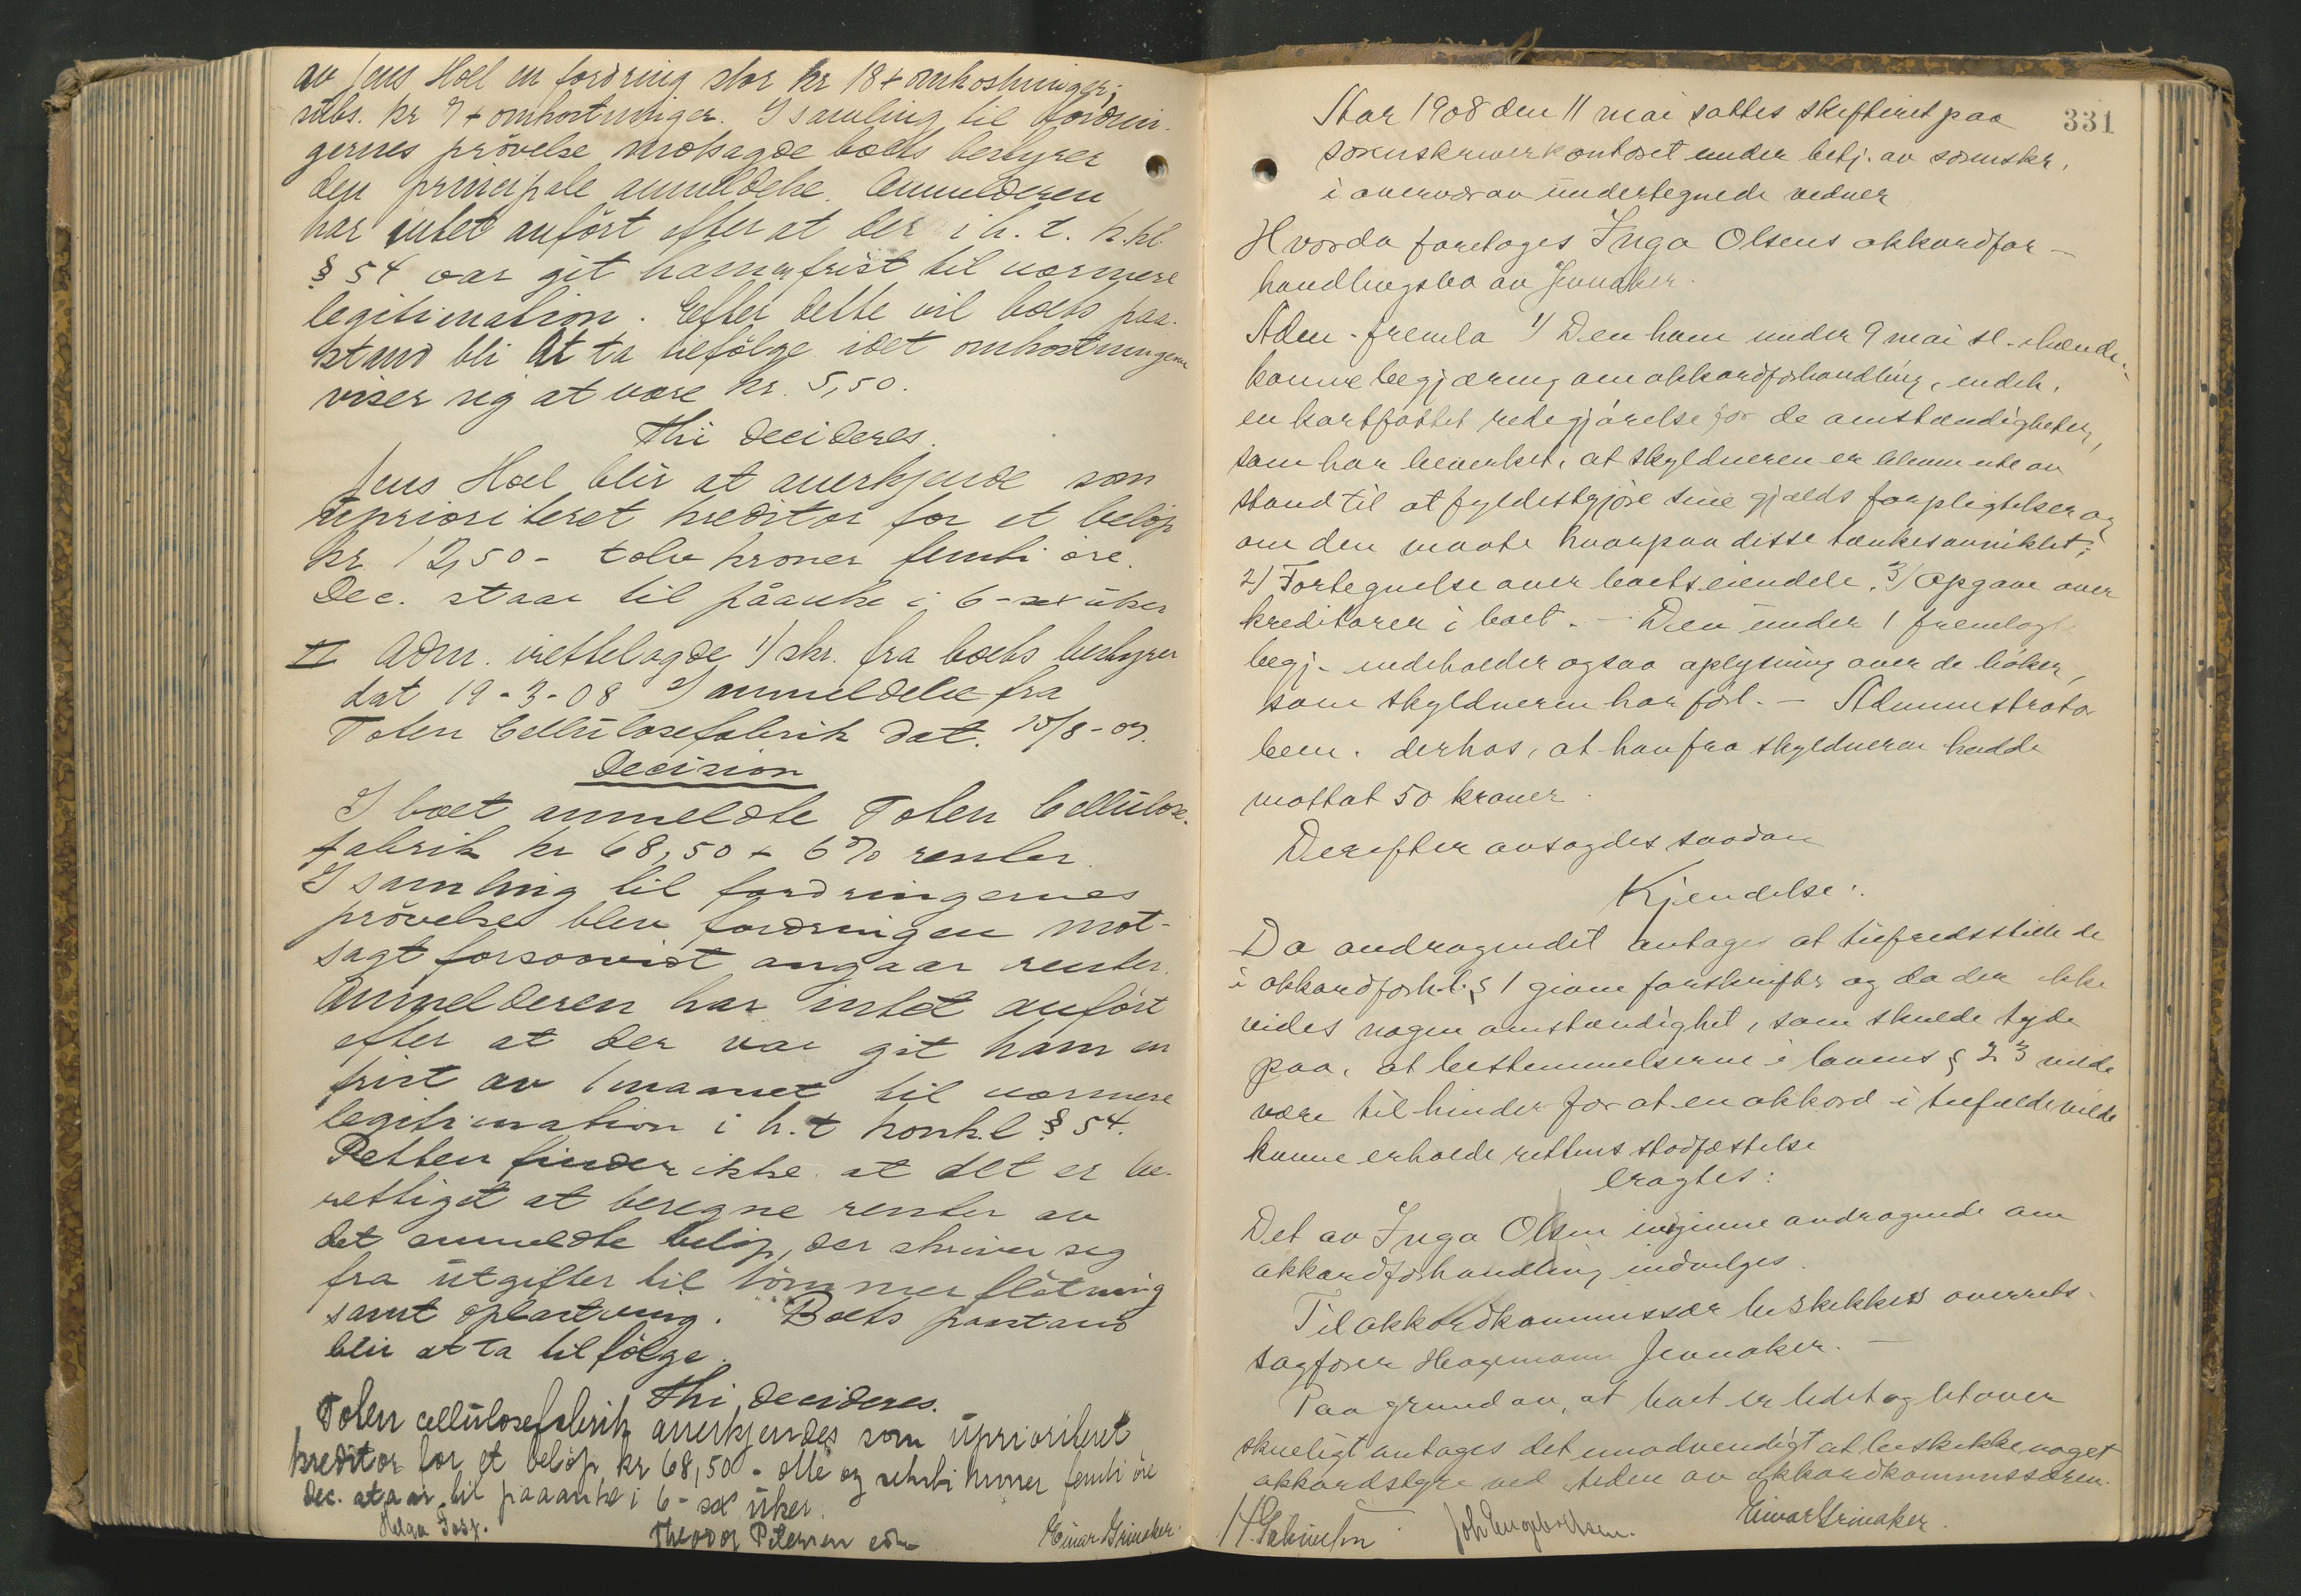 av Jens Hoel en fordring stor kr 18 + omkostninger,
subs. kr 7 + omkostninger. I samling til fordrin-
gernes prøvelse motsagde boets bestyrer
den principale anmeldelse. Anmelderen
har intet anført efter at der i h. t. k.kl.
§ 54 var git ham en frist til nærmere
legitimation. Efter dette vil boets paa-
stand bli at ta tilfølge idet omkostningerne
viser sig at være kr. 5,50.
Thi decideres.
Jens Hoel blir at anerkjende som
uprioriteret kreditor for et beløp
kr 12,50 - tolv kroner femti øre.
Dec. staar til påanke i 6 - sex uker
II Adm. irettelagde 1) skr. fra boets bestyrer
dat 19-3-08 2) anmeldelse fra
Toten Cellulosefabrik dat. 15/8-07.
Decision
I boet anmeldte Toten Cellulose-
fabrik kr 68,50 + 6% renter.
I samling til fordringernes
prøvelse blev fordringen mot-
sagt forsaavidt angaar renter.
Anmelderen har intet anført
efter at der var git ham en
frist av 1 maanet til nærmere
legitimation i h.t konk.l § 54.
Retten finder ikke at det er be-
rettiget at beregne renter av
det anmeldte beløp, der skriver seg
fra utgifter til tømmerfløtning
samt oplastning. Boets paastand
blir at ta tilfølge.
Thi decideres.
Toten cellulosefabrik anerkjendes som uprioriteret
kreditor for et beløp kr 68,50 - otte og seksti kroner femti øre
Dec. staar til paaanke i 6 - sex uker.
Helga
Theodor Petersen
Einar Grinaker
331
Aar 1908 den 11 mai sattes skifteret paa
sorenskriverkontoret under betj. av sorenskr.
i overvær av undertegnede vidner
Hvorda foretages Inga Olsens akkordfor-
handlingsbo av Jevnaker.
Adm. fremla 1) Den ham under 9 mai sl. ihænde-
komne begjæring om akkordforhandling, indeh.
en kortfattet redegjørelse for de omstændigheter,
som har bevirket, at skyldneren er blevet ute av
stand til at fyldestgjøre sine gjælds forpligtelser og
om den maate hvorpaa disse tænkes avviklet;
2) Fortegnelse over boets eiendele. 3) Opgave over
kreditorer i boet. - Den under 1 fremlagte
begj. indeholder ogsaa oplysning over de bøker,
som skyldneren har ført. - Administrator
bem. derhos, at han fra skyldneren hadde
mottat 50 kroner.
Derefter avsagdes saadan
Kjendelse:
Da andragendet antages at tilfredsstille de
i akkordforh.l. § 1 givne forskrifter og da der ikke
vides nogen omstændighet, som skulde tyde
paa, at bestemmelserne i lovens § 23 vilde
være til hinder for at en akkord i tilfælde vilde
kunne erholde rettens stadfæstelse
eragtes:
Det av Inga Olsen indgivne andragende om
akkordforhandling indvilges.
Til akkordkommissær beskikkes overrets-
sagfører Hagemann Jevnaker. -
Paa grund av, at boet er lidet og let over
skueligt antages det unødvendigt at beskikke noget
akkordstyre ved siden av akkordkommissæren.
Joh Engebretsen.
Einar Grinaker.